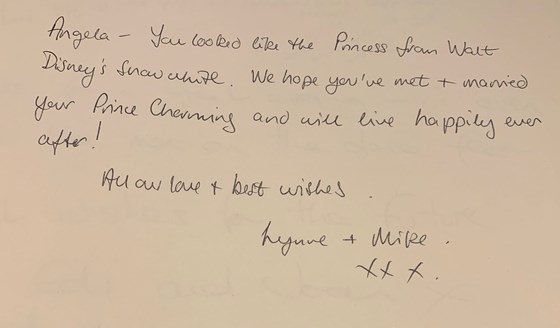 Angela - You looked like the Princess from Walt
Disney's Snow white. We hope you've met + married
your Prince Charming and will live happily ever
after!
All our love + best wishes.
Lynne + Mike.
xx x.